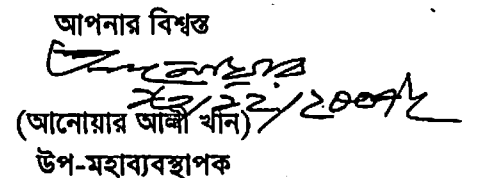 আপনার বিশ্বস্ত
আনোয়ার
(আনোয়ার আলী খান)
উপ-মহাব্যবস্থাপক